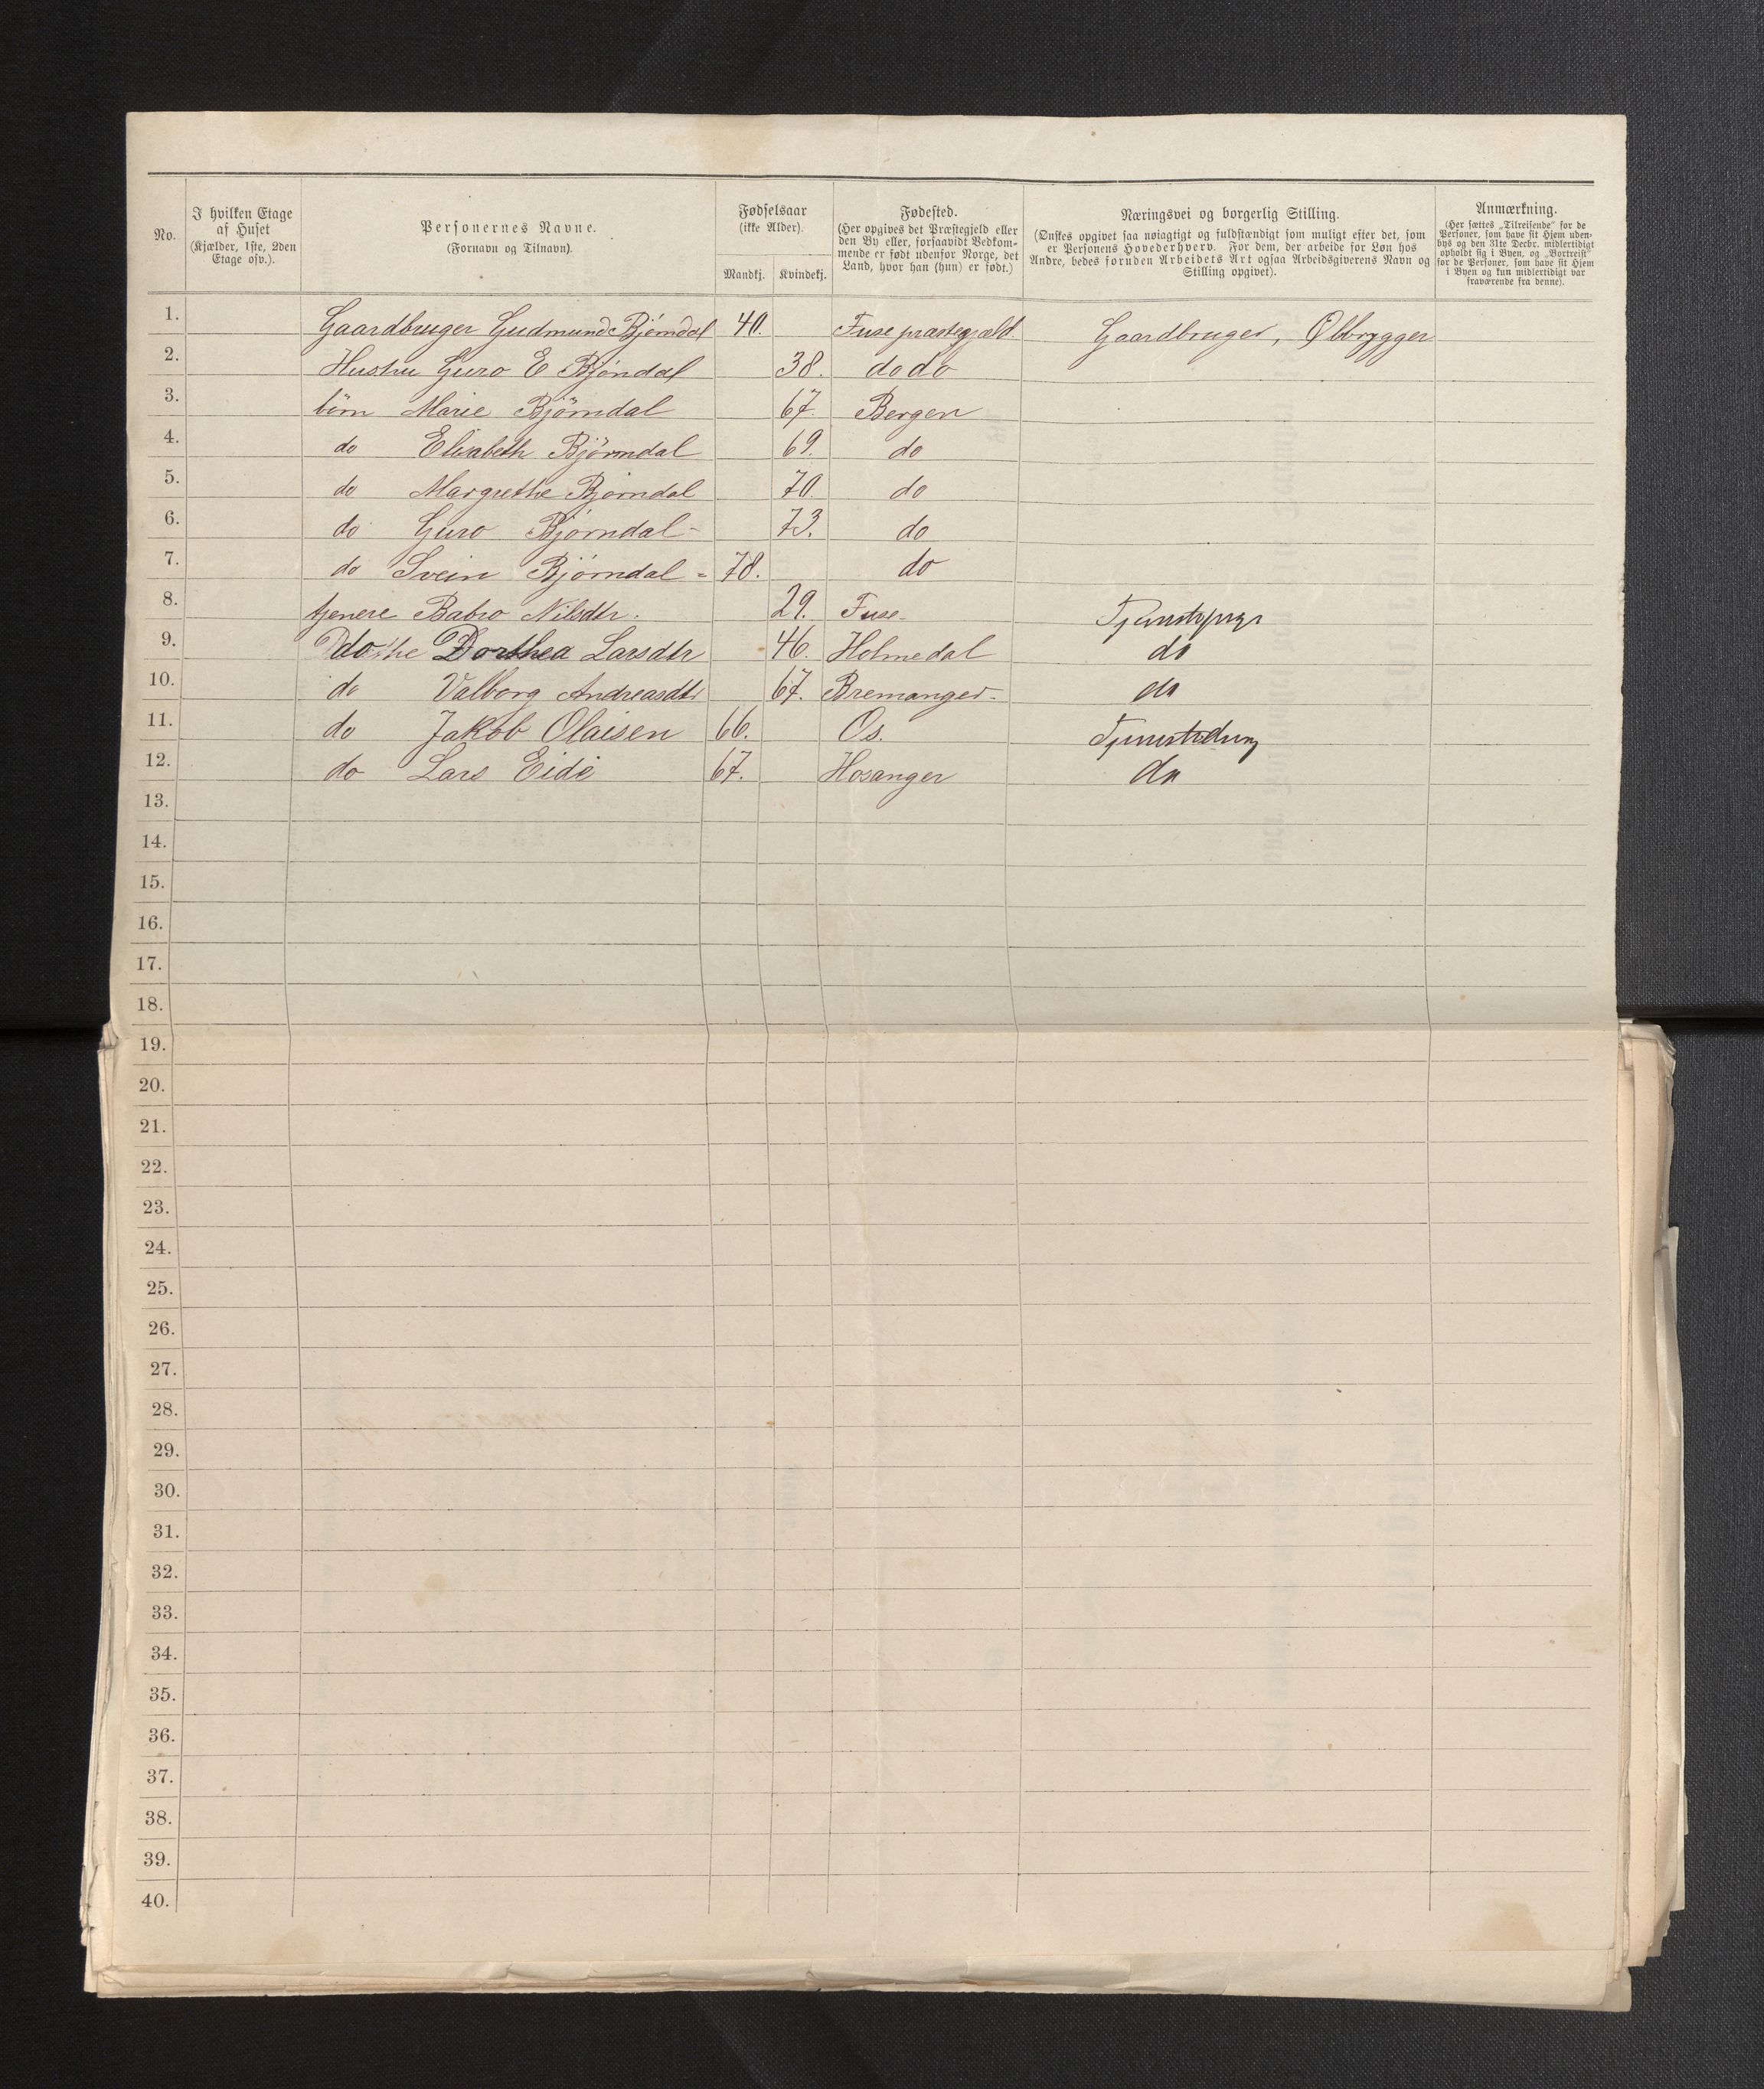 No.
I hvilken Etage
af Huset
(Kjælder, 1ste, 2den
Etage osv.).
Personernes Navne.
(Fornavn og Tilnavn).
Fødselsaar
(ikke Alder).
Mandkj. Kvindekj.
Fødested.
(Her opgives det Præstegjeld eller
den By eller, forsaavidt Vedkom-
mende er født udenfor Norge, det
Land, hvor han (hun) er født.)
Næringsvei og borgerlig Stilling.
(Ønskes opgivet saa nøiagtigt og fuldstændigt som muligt efter det, som
er Personens Hovederhverv. For dem, der arbeide for Løn hos
Andre, bedes foruden Arbeidets Art ogsaa Arbeidsgiverens Navn og
Stilling opgivet).
Anmærkning.
(Her sættes „Tilreisende" for de
Personer, som have sit Hjem uden-
bys og den 31te Decbr. midlertidigt
opholdt sig i Byen, og „Bortreist"
for de Personer, som have sit Hjem
i Byen og kun midlertidigt var
fraværende fra denne).
1. Gaardbruger Gudmund Bjørndal 40. Fuse præstegjæld. Gaardbruger, Ølbrygger
2. Hustru Guro E Bjøndal 38. do do
3. børn Marie Bjørndal 67. Bergen
4. do Elisabeth Bjørndal 69. do
5. do Margrethe Bjørndal 70. do
6. do Guro Bjørndal- 73. do
7. do Svein Bjørndal - 78. do
8. tjenere Babro Nilsdtr. 29. Fuse- Tjenestepige
9. do Dorthea Larsdtr 46. Holmedal do
10. do Valborg Andreasdtr 67. Bremanger- do
11. do Jakob Olaisen 66. Os. Tjenestedreng
12. do Lars Eide 67. Hosanger do
13.
14.
15.
16.
17.
18.
19.
20.
21.
22.
23.
24.
25.
26.
27.
28.
29.
30.
31.
32.
33.
34.
35.
36.
37.
38.
39.
40.